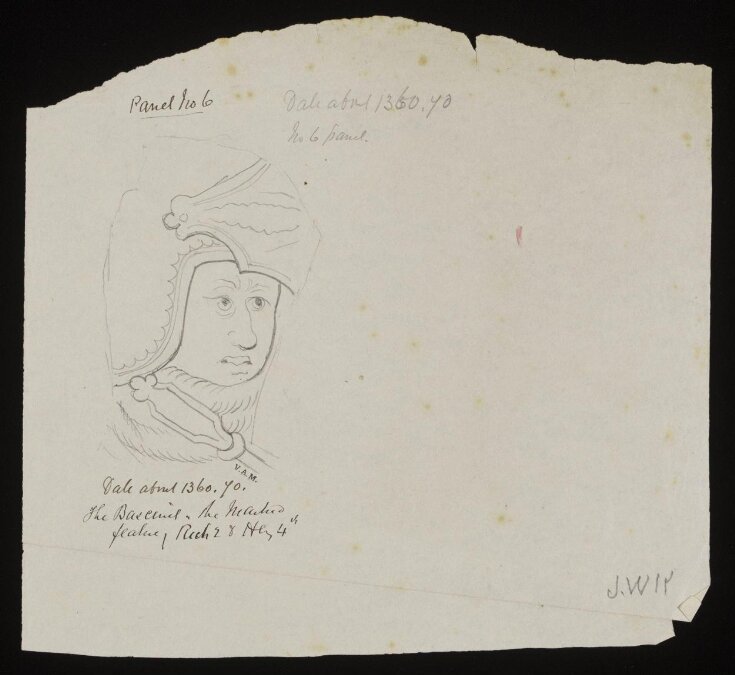 Panel No 6
Date about 1360.70
No 6 Panel.
V.A.M.
Date about 1360.70.
The Bascinet the Marked
feature of Rich 2 & Hy 4th
J.W